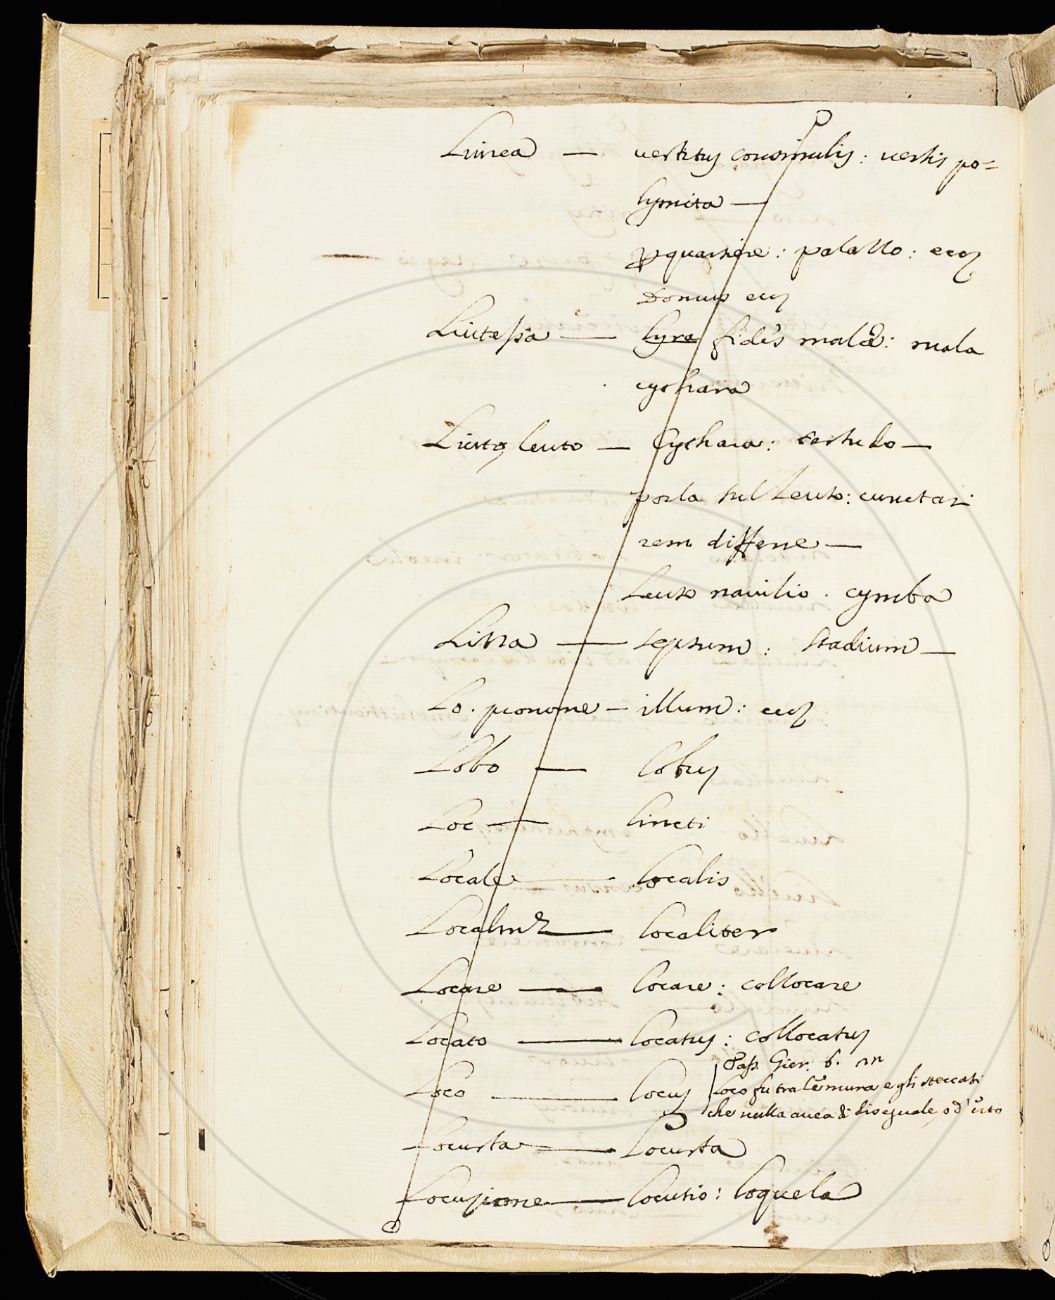 Liurea — vestitus consimilis: vestis po=
lymita —
— p quartiere: palazzo: ecc
Domus ecc
Liutessa — lyre fides mala: mala
cythara
Liuto, leuto — Cythara: testudo —
posla sul Leuto: cunctari
rem differre —
Leuto nauilio. cymba
Lizza — septum: stadium —
Lo. pronome — illum: ecc
Lobo — lobus
Loc — lincti
Locale — localis
Localmte — localiter
Locare — locare: collocare
Locato — locatus: collocatus
Tass. Gier. 6.
Loco — locus loco fu tra le mura e gli steccati
che nulla auea di diseguale, o d'erto
Locusta — Locusta
Locuzione — locutio: loquela